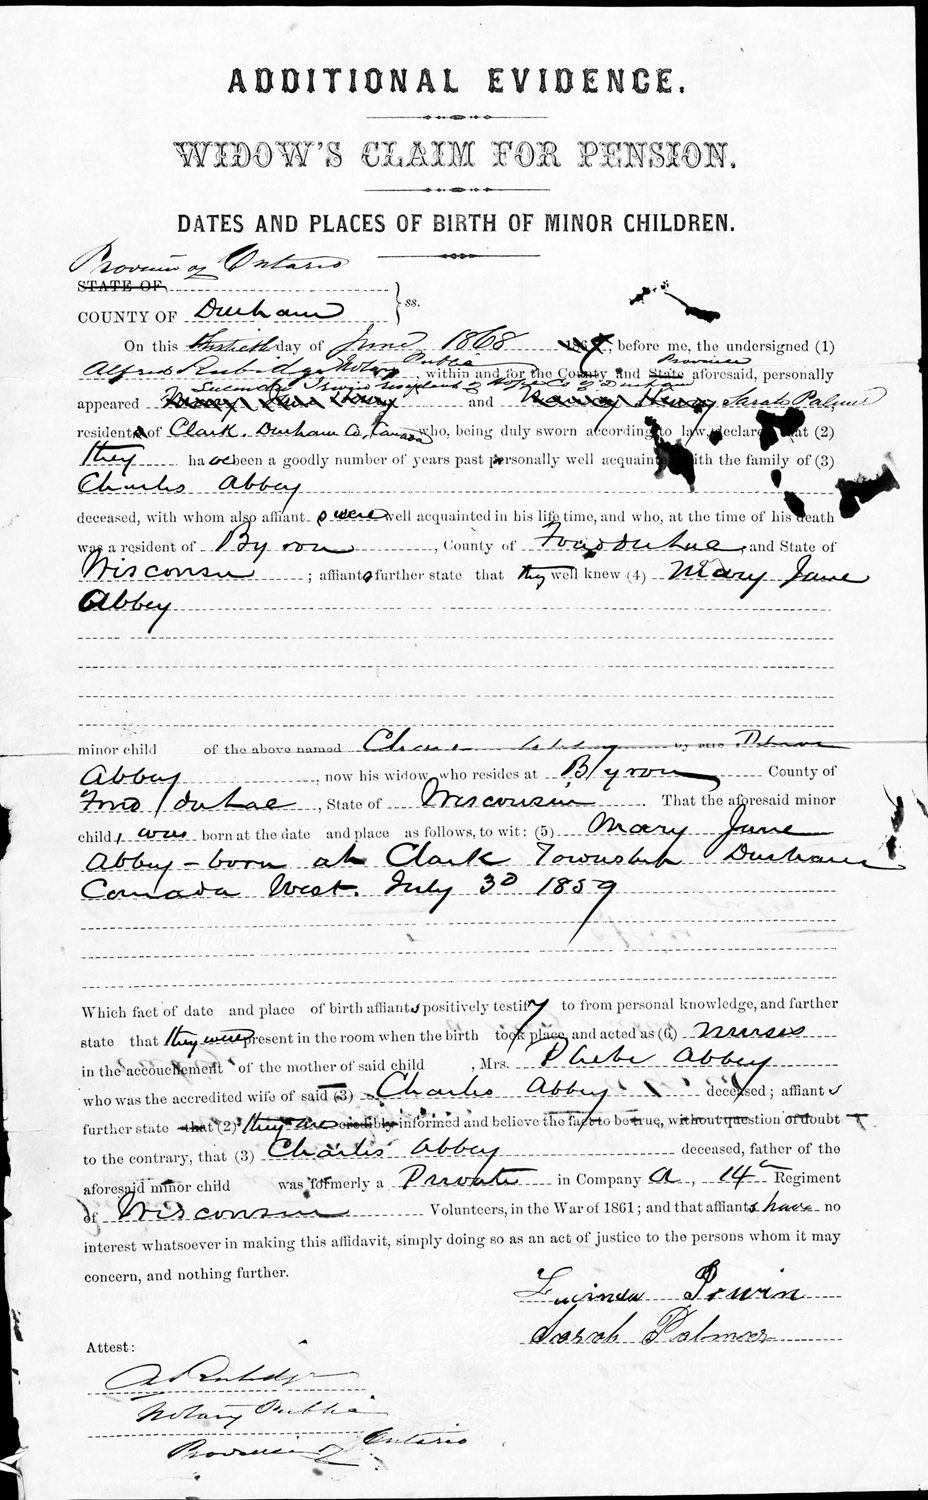 ADDITIONAL EVIDENCE.
WIDOW'S CLAIM FOR PENSION.
DATES AND PLACES OF BIRTH OF MINOR CHILDREN.
Province of Ontario
STATE OF
COUNTY OF Durham } ss.
On this thirtieth day of June 1868 186 , before me, the undersigned (1)
Alfred Rubidge Notary Public, within and for the County and State Province aforesaid, personally
Lucinda Irwin resident of Hope Co of Durham
appeared Mary Jane Henry and Nancy Henry Sarah Palmer
residents of Clark. Durham Co, Canada who, being duly sworn according to law, declare that (2)
they have been a goodly number of years past personally well acquainted with the family of (3)
Charles Abbey
deceased, with whom also affiants were well acquainted in his life time, and who, at the time of his death
was a resident of Byron, County of Fond du Lac and State of
Wisconsin ; affiants further state that they well knew (4) Mary Jane
Abbey
minor child of the above named Charles Abbey by his Phebe
Abbey , now his widow, who resides at Byron County of
Fond du Lac , State of Wisconsin . That the aforesaid minor
child, was born at the date and place as follows, to wit: (5) Mary Jane
Abbey - born at Clark Township Durham
Canada West. July 30 1859
Which fact of date and place of birth affiants positively testify to from personal knowledge, and further
state that they were present in the room when the birth took place, and acted as (6) nurses
in the accouchement of the mother of said child , Mrs. Phebe Abbey
who was the accredited wife of said (3) Charles Abbey deceased; affiants
further state that (2) they are credibly informed and believe the fact to be true, without question or doubt
to the contrary, that (3) Charles Abbey deceased, father of the
aforesaid minor child was formerly a Private in Company A, 14th Regiment
of Wisconsin Volunteers, in the War of 1861; and that affiants have no
interest whatsoever in making this affidavit, simply doing so as an act of justice to the persons whom it may
concern, and nothing further.
Lucinda Irwin
Sarah Palmer
Attest:
A Rubidge
Notary Public
Province of Ontario